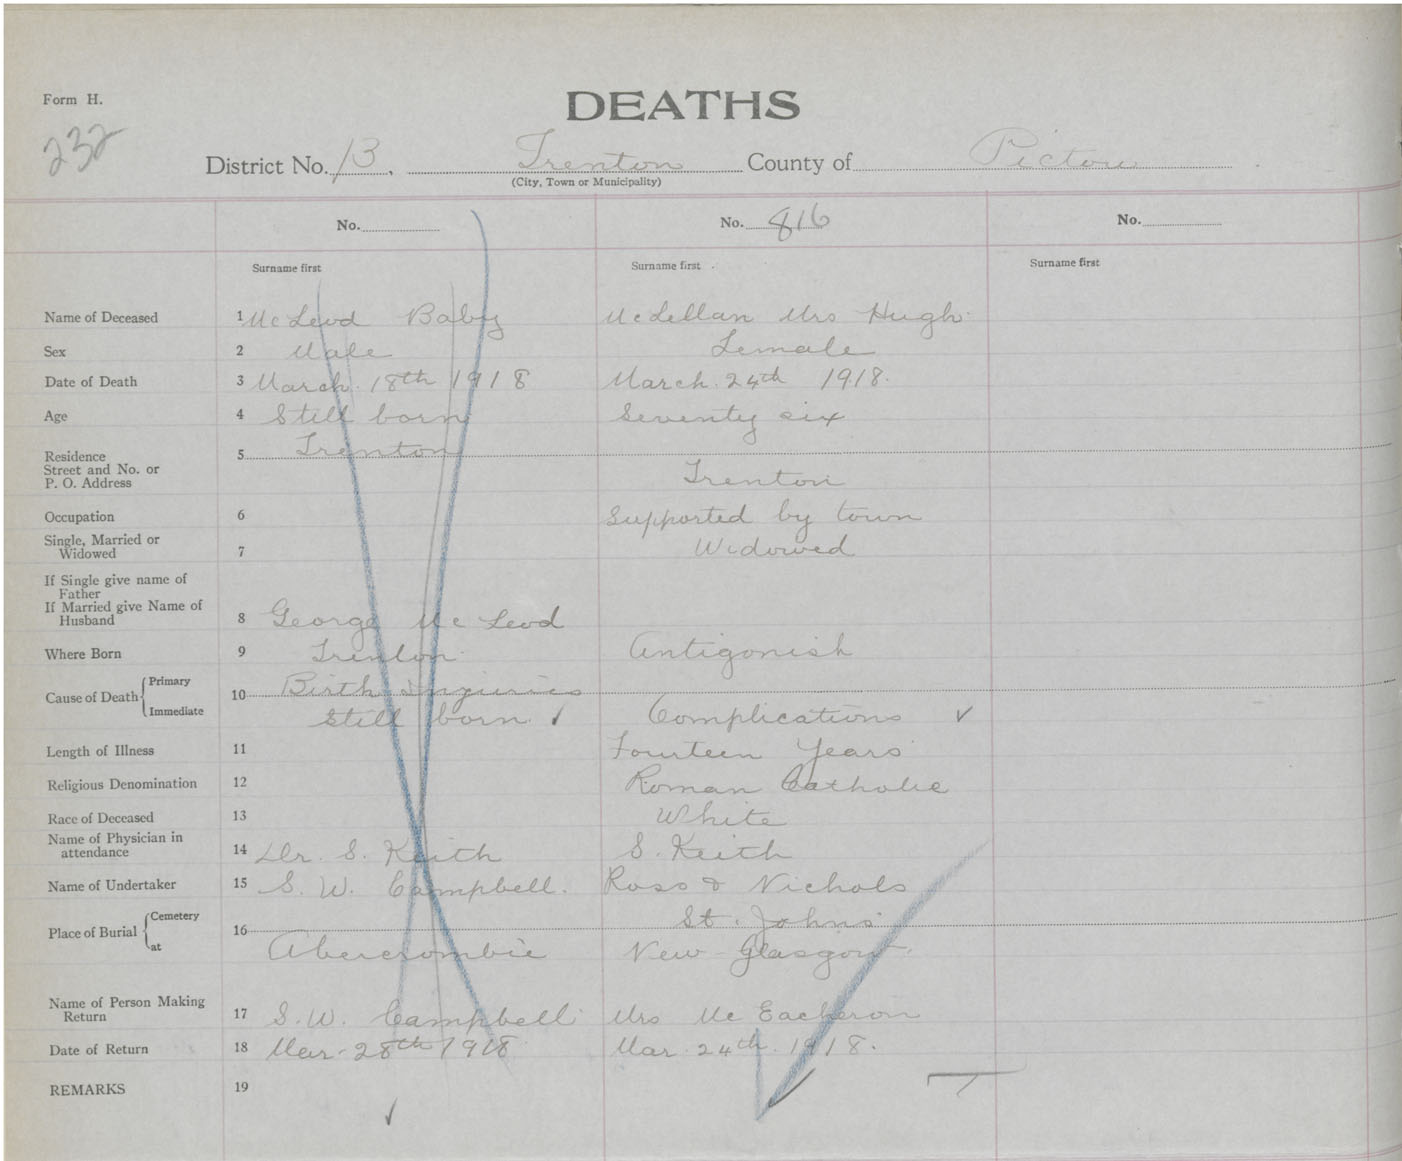 Form H.
DEATHS
232
District No. 13, Trenton County of Pictou
(City, Town or Municipality)
No. No. 816 No.
Surname first Surname first Surname first
Name of Deceased 1 McLeod Baby McLellan Mrs Hugh
Sex 2 Male Female
Date of Death 3 March 18th 1918 March 24th 1918.
Age 4 Still born Seventy six
Residence 5 Trenton
Street and No. or
P. O. Address Trenton
Occupation 6 Supported by town
Single, Married or
Widowed 7 Widowed
If Single give name of
Father
If Married give Name of
Husband 8 George McLeod
Where Born 9 Trenton Antigonish
Cause of Death Primary 10 Birth Injuries
Immediate Still born ✓ Complications ✓
Length of Illness 11 Fourteen Years
Religious Denomination 12 Roman Catholic
Race of Deceased 13 White
Name of Physician in
attendance 14 Dr. S. Keith S. Keith
Name of Undertaker 15 S. W. Campbell. Ross & Nichols
Place of Burial Cemetery 16 St. Johns
at Abercrombie New-Glasgow
Name of Person Making
Return 17 S. W. Campbell Mrs McEacheron
Date of Return 18 Mar-28th 1918 Mar. 24th. 1918.
REMARKS 19